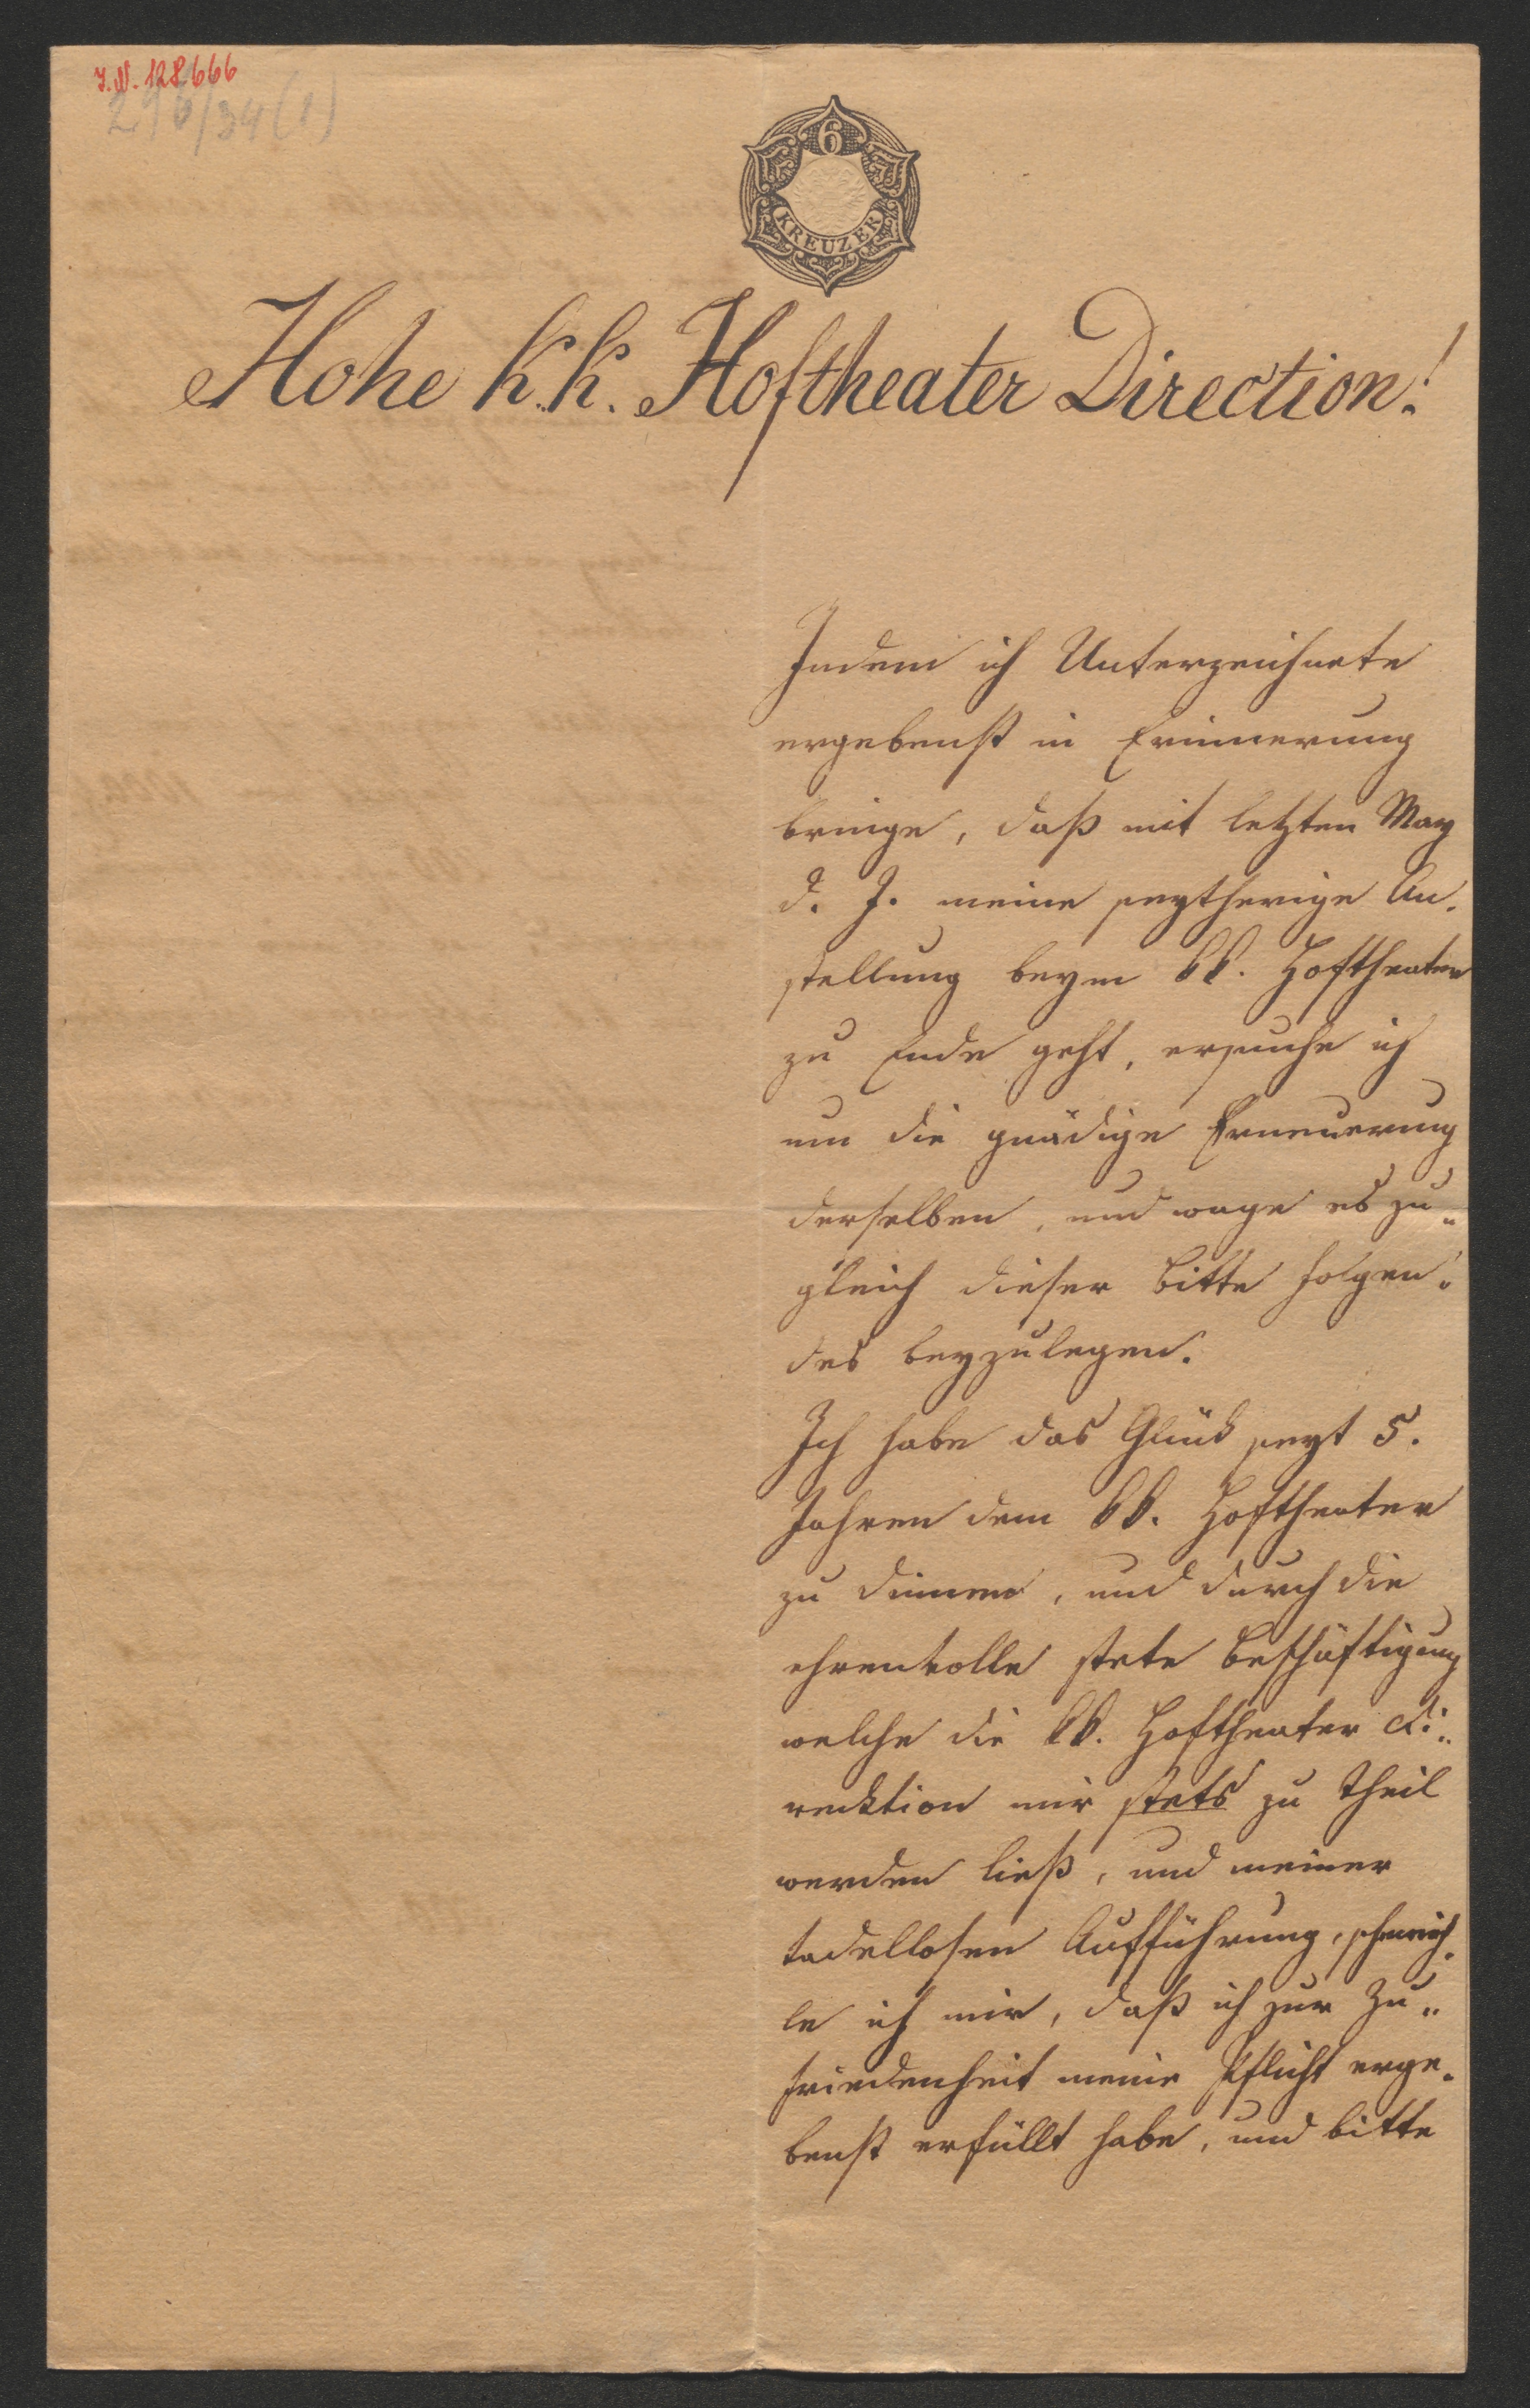 I.N. 128.666
296/34 (1)
6
KREUZER
Hohe k. k. Hoftheater Direction!
Indem ich Unterzeichnete
ergebenst in Erinnerung
bringe, daß mit letzten May
d. J. meine seytherige An-
stellung beym kk. Hoftheater
zu Ende geht, ersuche ich
um die gnädige Erneuerung
derselben, und wage es zu-
gleich dieser Bitte folgen-
des beyzulegen.
Ich habe das Glück seyt 5.
Jahren dem kk. Hoftheater
zu dienen, und durch die
ehrenvolle stete Beschäftigung
welche die kk. Hoftheater Di-
recktion mir stets zu Theil
werden ließ, und meiner
tadellosen Aufführung, schmeich-
le ich mir, daß ich zur Zu-
friedenheit meine Pflicht erge-
benst erfüllt habe, und bitte